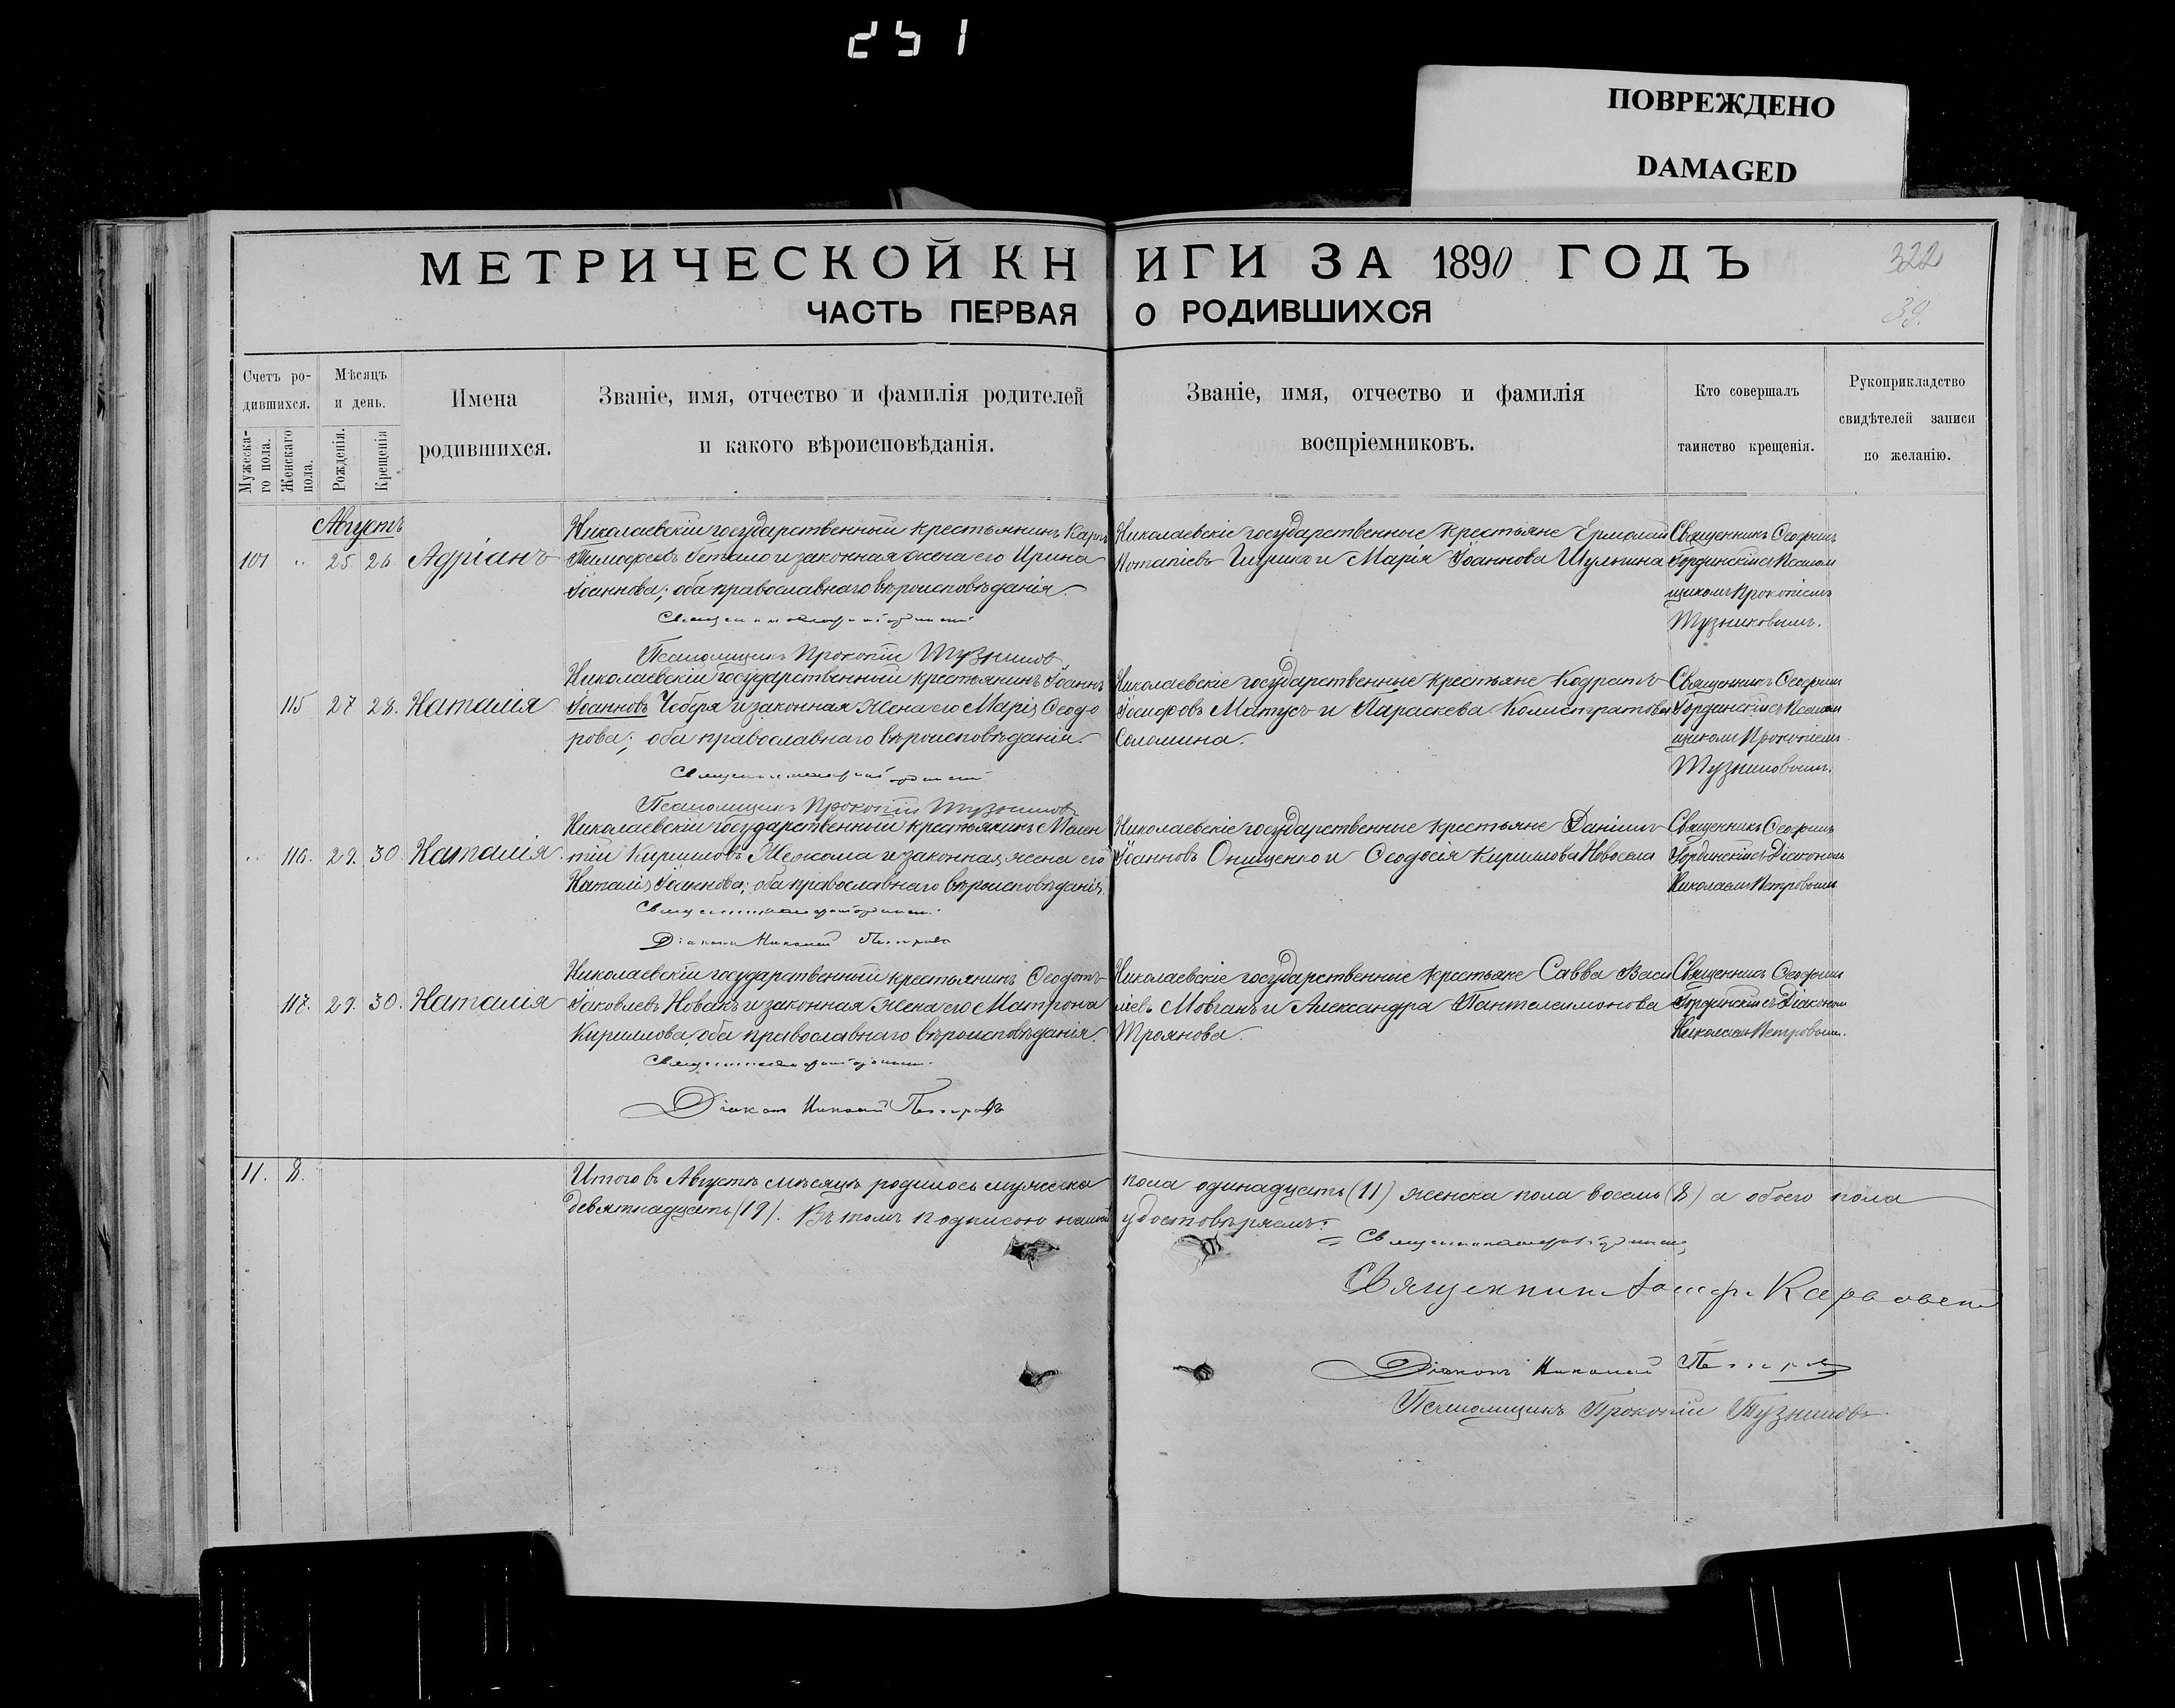 251
ПОВРЕЖДЕНО
DAMAGED
МЕТРИЧЕСКОЙ КНИГИ ЗА 1890 ГОДЪ
322
ЧАСТЬ ПЕРВАЯ О РОДИВШИХСЯ
39.
Счетъ ро-
дившихся.
Мужеска-
го пола.
Женскаго
пола.
Мѣсяцъ
и день.
Рожденія.
Крещенія
Имена
родившихся.
Званіе, имя, отчество и фамилія родителей
и какого вѣроисповѣданія.
Званіе, имя, отчество и фамилія
воспріемниковъ.
Кто совершалъ
таинство крещенія.
Рукоприкладство
свидѣтелей записи
по желанію.
Августъ
101 " 25 26 Адріанъ
Николаевскій государственный крестьянинъ Карпъ
Тимофеевъ и законная жена его Ирина
Іоаннова; оба православнаго вѣроисповѣданія.
Псаломщикъ Прокопій Тузниковъ
Николаевскіе государственные крестьяне Ермолай
Потапіевъ и Марія Іоаннова Шульгина
Священникъ Ѳеофилъ
Гординскій съ Псалом
щикомъ Прокопіемъ
Тузниковымъ.
115 27 28. Наталія
Николаевскій государственный крестьянинъ Іоаннъ
Іоанновъ Чеберя и законная жена его Марія Ѳеодо
рова; оба православнаго вѣроисповѣданія.
Псаломщикъ Прокопій Тузниковъ
Николаевскіе государственные крестьяне Кодратъ
Іосифовъ Матусъ и Параскева Калистратова
Соломина.
Священникъ Ѳеофилъ
Гординскій съ Псалом
щикомъ Прокопіемъ
Тузниковымъ.
" 116. 29. 30 Наталія
Николаевскій государственный крестьянинъ Мелен
тій Кирилловъ и законная жена его
Наталія Іоаннова; оба православнаго вѣроисповѣданія.
Діаконъ Николай Петровъ
Николаевскіе государственные крестьяне Даніилъ
Іоанновъ Онищенко и Ѳеодосія Кириллова Новосела
Священникъ Ѳеофилъ
Гординскій съ Діакономъ
Николаемъ Петровымъ
117. 29. 30. Наталія
Николаевскій государственный крестьянинъ Ѳеодотъ
Іаковлевъ Новакъ и законная жена его Матрона
Кириллова, оба православнаго вѣроисповѣданія.
Діаконъ Николай Петровъ
Николаевскіе государственные крестьяне Савва Васи
ліевъ Мовчанъ и Александра Пантелеимонова
Троянова.
Священникъ Ѳеофилъ
Гординскій съ Діакономъ
Николаемъ Петровымъ.
11. 8.
Итого въ Августѣ мѣсяцѣ родилось мужеска пола одинадцать (11) женска пола восемь (8) а обоего пола
девятнадцать (19). Въ томъ подписью нашей удостовѣряемъ:
Священникъ
Діаконъ Николай Петровъ
Псаломщикъ Прокопій Тузниковъ.